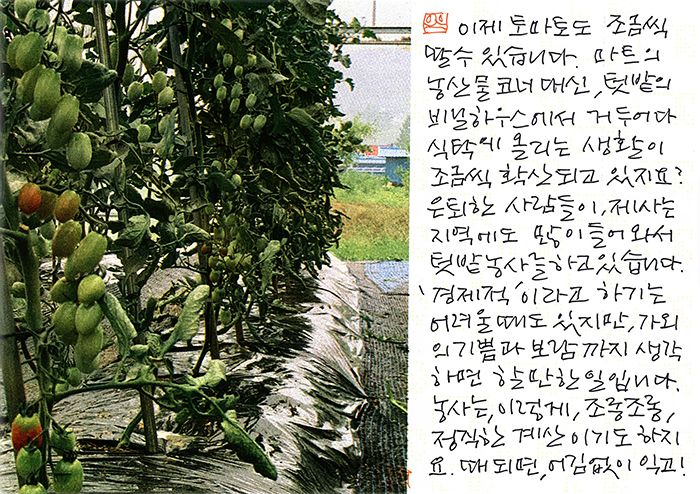 이제 토마토도 조금씩
딸 수 있습니다. 마트의
농산물코너 대신, 텃밭의
비닐하우스에서 거두어다
식탁에 올리는 생활이
조금씩 확산되고 있지요?
은퇴한 사람들이, 제사는
지역에도 많이 들어와서
텃밭농사를하고있습니다.
'경제적'이라고 하기는
어려울때도 있지만, 가외
의기쁨과 보람까지 생각
하면 할만한일입니다.
농사는, 이렇게, 조롱조롱,
정직한 계산이기도 하지
요. 때되면, 어김없이 익고!